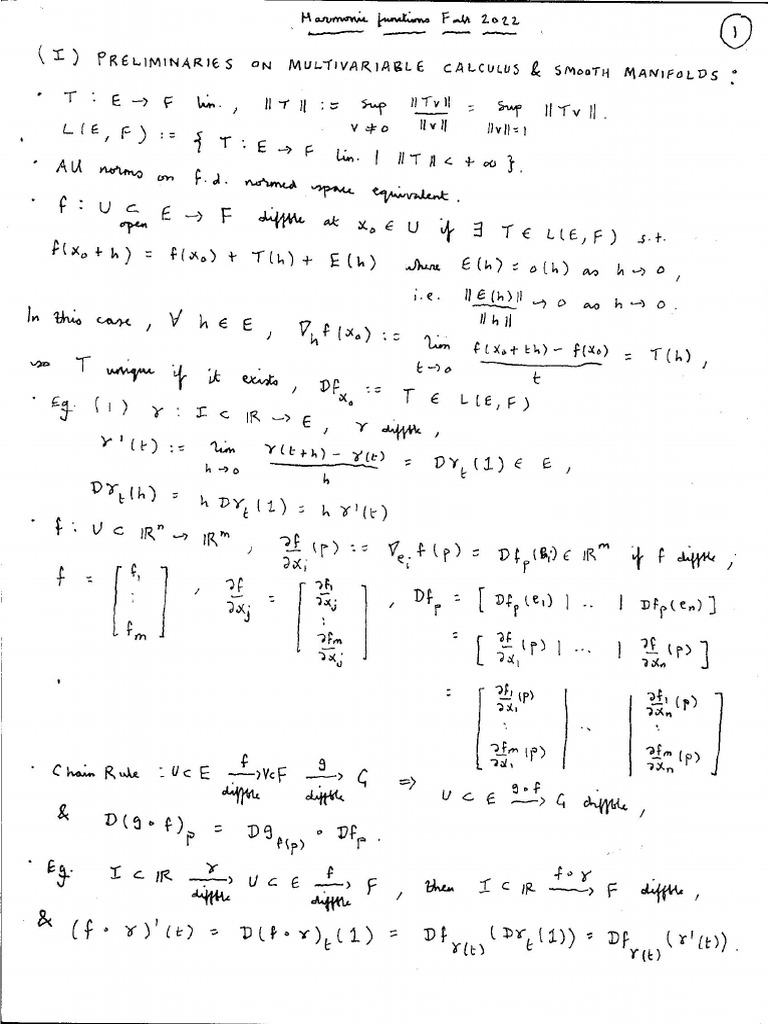 Harmonic functions Fall 2022
1
(I) PRELIMINARIES ON MULTIVARIABLE CALCULUS & SMOOTH MANIFOLDS :
· T : E → F lin., ||T|| := sup_{v≠0} ||Tv||/||v|| = sup_{||v||=1} ||Tv||.
L(E,F) := { T : E → F lin. | ||T|| < +∞ }.
· All norms on f.d. normed space equivalent.
· f : U ⊂_{open} E → F diffble at x₀ ∈ U if ∃ T ∈ L(E,F) s.t.
f(x₀+h) = f(x₀) + T(h) + E(h) where E(h) = o(h) as h → 0,
i.e. ||E(h)||/||h|| → 0 as h → 0.
In this case, ∀ h ∈ E, ∇_h f(x₀) := lim_{t→0} (f(x₀+th) − f(x₀))/t = T(h),
so T unique if it exists, Df_{x₀} := T ∈ L(E,F)
· Eg. (1) γ : I ⊂ IR → E, γ diffble,
γ'(t) := lim_{h→0} (γ(t+h) − γ(t))/h = Dγ_t(1) ∈ E,
Dγ_t(h) = h Dγ_t(1) = h γ'(t)
· f : U ⊂ IRⁿ → IRᵐ, ∂f/∂x_i (p) := ∇_{e_i} f(p) = Df_p(e_i) ∈ IRᵐ if f diffble;
f = [f₁ : f_m], ∂f/∂x_j = [∂f₁/∂x_j : ∂f_m/∂x_j], Df_p = [Df_p(e₁) | .. | Df_p(e_n)]
= [∂f/∂x₁ (p) | ... | ∂f/∂x_n (p)]
= [∂f₁/∂x₁ (p) : ∂f_m/∂x₁ (p) | .. | ∂f₁/∂x_n (p) : ∂f_m/∂x_n (p)]
· Chain Rule : U⊂E →^{f}_{diffble} V⊂F →^{g}_{diffble} G ⇒ U ⊂ E →^{g∘f} G diffble,
& D(g∘f)_p = Dg_{f(p)} ∘ Df_p.
· Eg. I ⊂ IR →^{γ}_{diffble} U ⊂ E →^{f}_{diffble} F, then I ⊂ IR →^{f∘γ} F diffble,
& (f∘γ)'(t) = D(f∘γ)_t(1) = Df_{γ(t)}(Dγ_t(1)) = Df_{γ(t)}(γ'(t)).